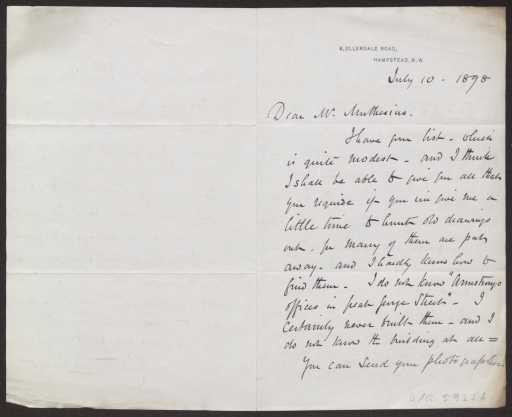 6, ELLERDALE ROAD,
HAMPSTEAD, N.W.
July 10 - 1898
Dear Mr. Muthesius.
I have your list - which
is quite modest - and I think
I shall be able to give you all that
you require if you will give me a
little time to hunt old drawings
out - for many of them are put
away - and I hardly know how to
find them - I do not know "Armstrongs
offices in great George Street" - I
certainly never built them - and I
do not know the building at all =
You can send your photographer